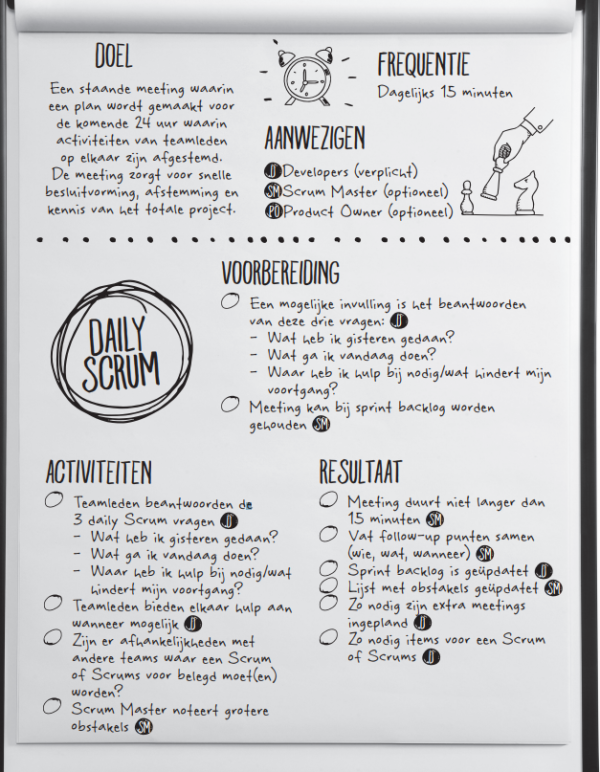 DOEL
Een staande meeting waarin
een plan wordt gemaakt voor
de komende 24 uur waarin
activiteiten van teamleden
op elkaar zijn afgestemd.
De meeting zorgt voor snelle
besluitvorming, afstemming en
kennis van het totale project.
FREQUENTIE
Dagelijks 15 minuten
AANWEZIGEN
D Developers (verplicht)
SM Scrum Master (optioneel)
PO Product Owner (optioneel)
DAILY
SCRUM
VOORBEREIDING
Een mogelijke invulling is het beantwoorden
van deze drie vragen: D
- Wat heb ik gisteren gedaan?
- Wat ga ik vandaag doen?
- Waar heb ik hulp bij nodig/wat hindert mijn
voortgang?
Meeting kan bij sprint backlog worden
gehouden SM
ACTIVITEITEN
Teamleden beantwoorden de
3 daily Scrum vragen D
- Wat heb ik gisteren gedaan?
- Wat ga ik vandaag doen?
- Waar heb ik hulp bij nodig/wat
hindert mijn voortgang?
Teamleden bieden elkaar hulp aan
wanneer mogelijk D
Zijn er afhankelijkheden met
andere teams waar een Scrum
of Scrums voor belegd moet(en)
worden?
Scrum Master noteert grotere
obstakels SM
RESULTAAT
Meeting duurt niet langer dan
15 minuten SM
Vat follow-up punten samen
(wie, wat, wanneer) SM
Sprint backlog is geüpdatet D
Lijst met obstakels geüpdatet SM
Zo nodig zijn extra meetings
ingepland D
Zo nodig items voor een Scrum
of Scrums D